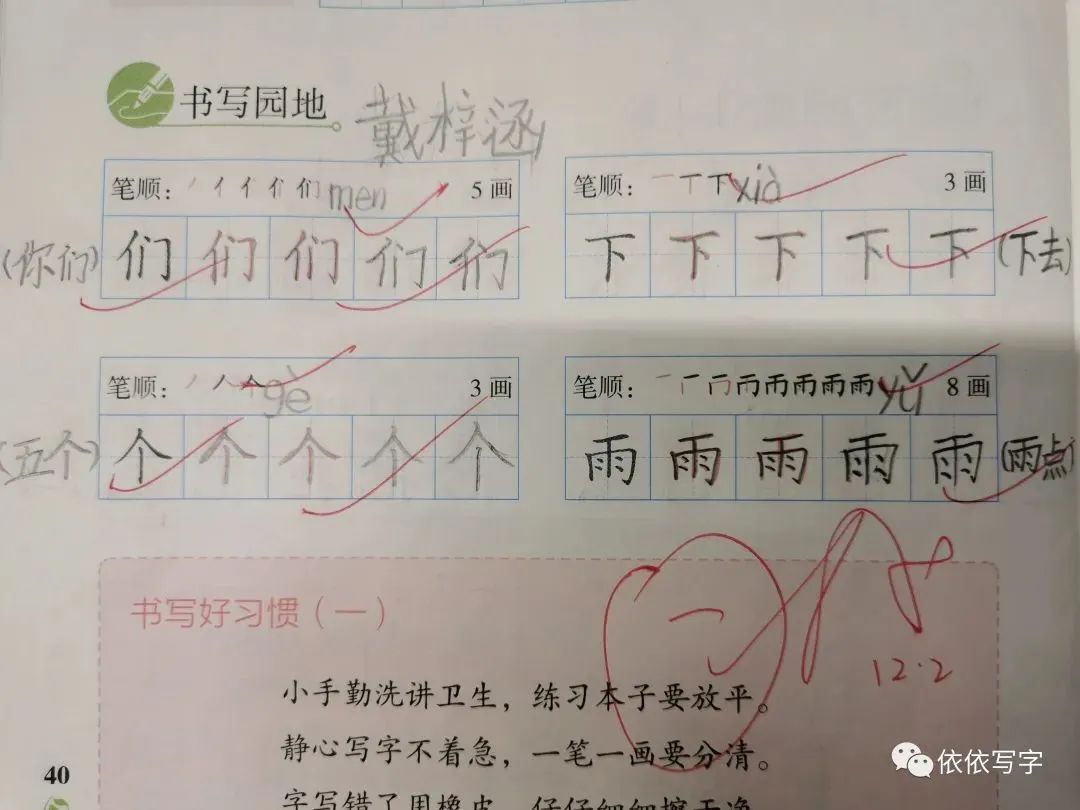 书写园地 戴梓涵
笔顺： 丿 亻 亻 们 们 men 5画
笔顺： 一 丅 下 xià 3画
(你们) 们 们 们 们 们
下 下 下 下 下 (下去)
笔顺： 丿 人 个 gè 3画
笔顺： 雨 雨 雨 雨 yǔ 8画
(五个) 个 个 个 个 个
雨 雨 雨 雨 雨 (雨点)
书写好习惯（一）
小手勤洗讲卫生，练习本子要放平。
静心写字不着急，一笔一画要分清。
字写错了用橡皮，仔仔细细擦干净
一 A+
12.2
40
依依写字